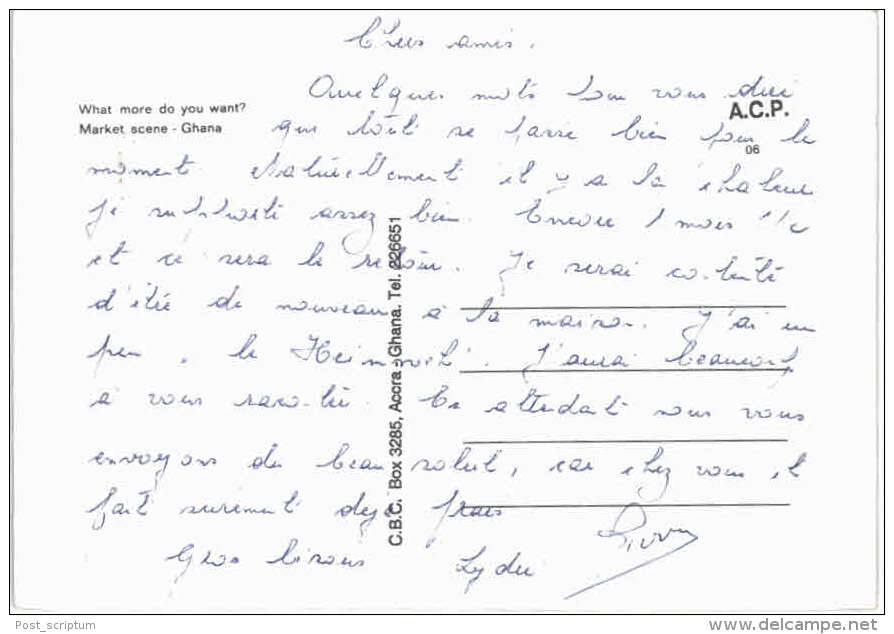 Chers amis.
Quelques mots pour vous dire
What more do you want?
A.C.P.
Market scene - Ghana
que tout se passe bien pour le
06
moment. Naturellement il y a la chaleur
je supporte assez bien. Encore 1 mois 1/2
et ce sera le retour. Je serai contente
d'être de nouveau à la maison. J'ai un
peu le "Heimweh". J'aurai beaucoup
à vous raconter. En attendant nous vous
envoyons du beau soleil, car chez vous il
fait surement déjà frais
Gros bisous Lydie Pierre
C.B.C. Box 3285, Accra - Ghana. Tel. 226651
Post_scriptum
www.delcampe.net